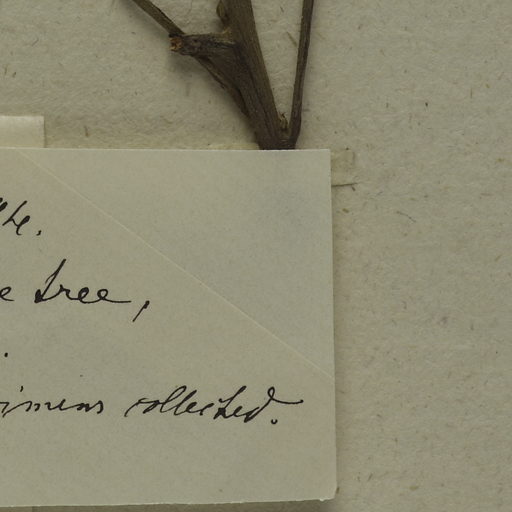 e tree,
.
imens collected.